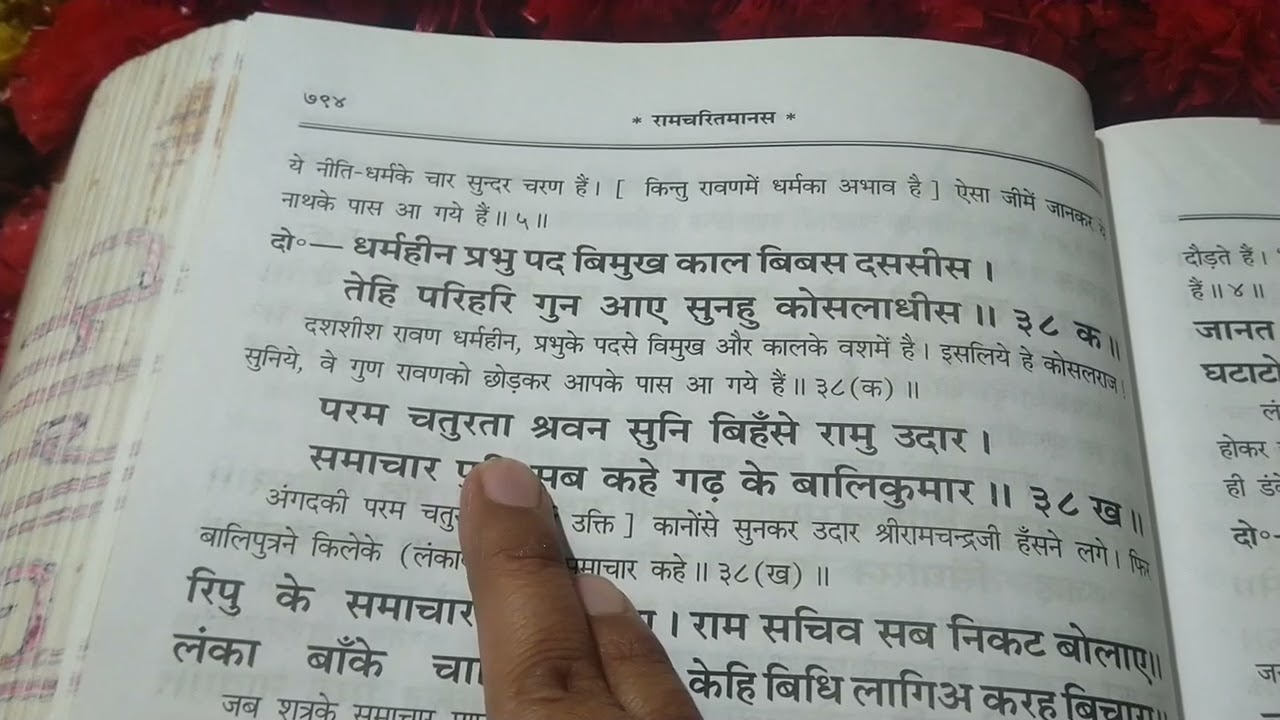 ७९४
* रामचरितमानस *
ये नीति-धर्मके चार सुन्दर चरण हैं। [ किन्तु रावणमें धर्मका अभाव है ] ऐसा जीमें जानकर
नाथके पास आ गये हैं॥ ५॥
दो०— धर्महीन प्रभु पद बिमुख काल बिबस दससीस ।
तेहि परिहरि गुन आए सुनहु कोसलाधीस ॥ ३८ क ॥
दशशीश रावण धर्महीन, प्रभुके पदसे विमुख और कालके वशमें है। इसलिये हे कोसलराज!
सुनिये, वे गुण रावणको छोड़कर आपके पास आ गये हैं॥ ३८(क) ॥
परम चतुरता श्रवन सुनि बिहँसे रामु उदार ।
समाचार सब कहे गढ़ के बालिकुमार ॥ ३८ ख ॥
अंगदकी परम उक्ति ] कानोंसे सुनकर उदार श्रीरामचन्द्रजी हँसने लगे। फिर
बालिपुत्रने किलेके समाचार कहे॥ ३८(ख) ॥
रिपु के समाचार । राम सचिव सब निकट बोलाए॥
लंका बाँके केहि बिधि लागिअ करहु
जब शत्रुके समाचार
दौड़ते हैं।
हैं॥ ४॥
जानत
घटाटो
होकर
ही
दो०-